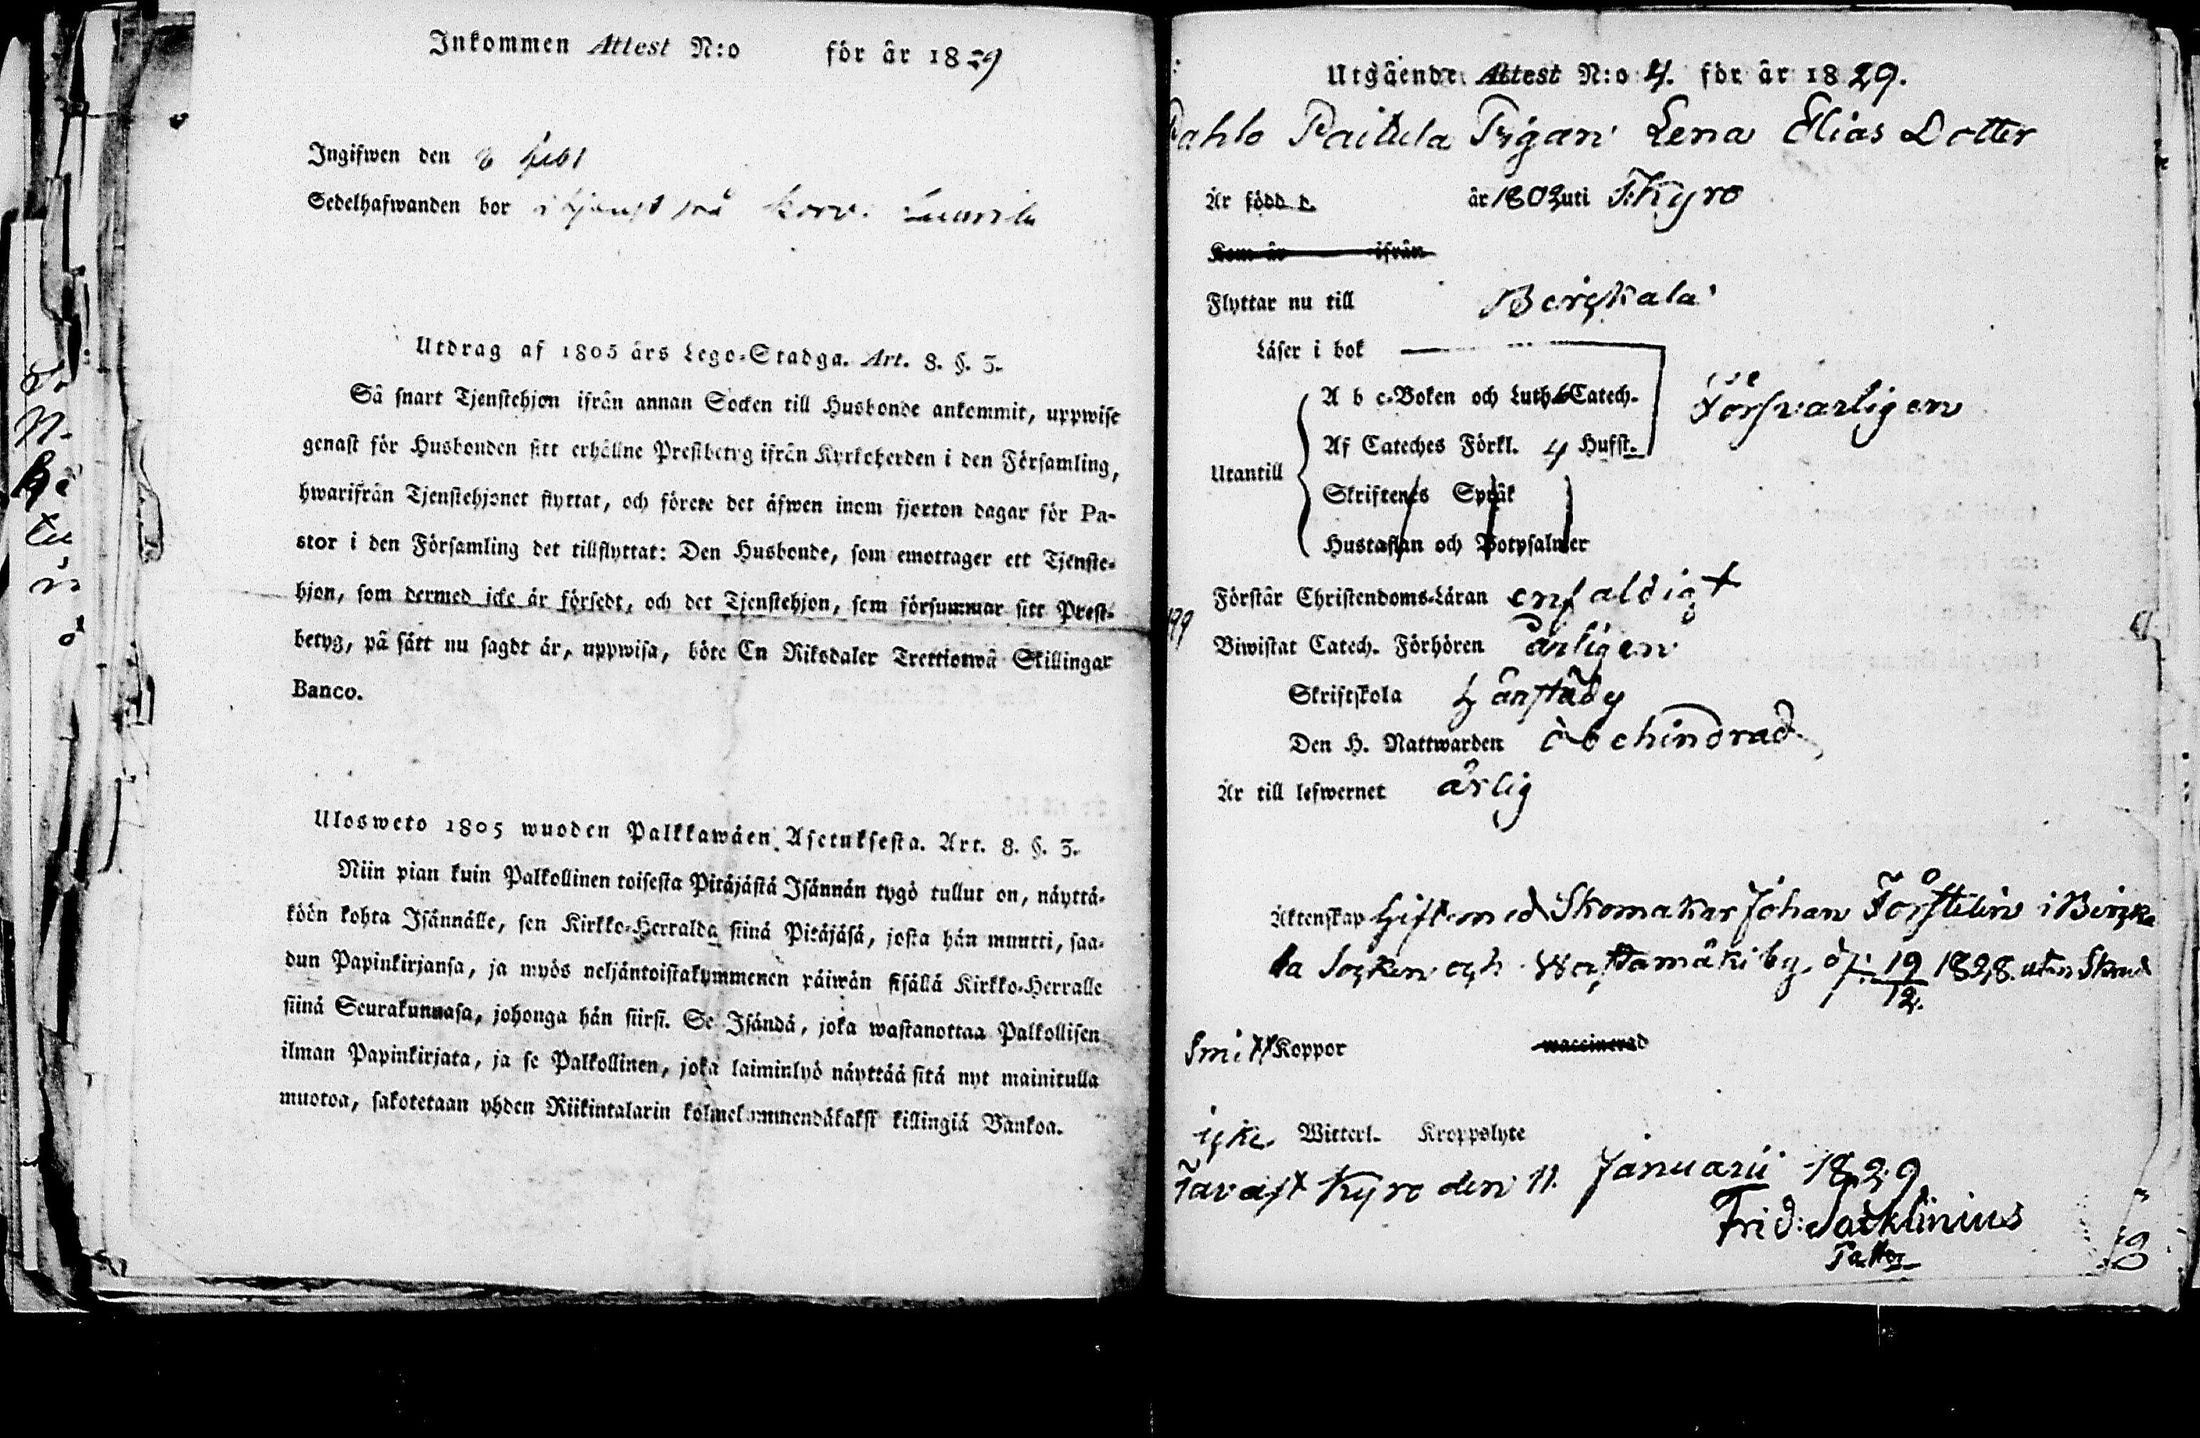 Inkommen Attest N:o för år 1829
Ingifwen den 8 Febr
Sedelhafwanden bor i tjenst på
Utdrag af 1805 års Lego-Stadga. Art. 8. §. 3.
Så snart Tjenstehjon ifrån annan Socken till Husbonde ankommit, uppwise
genast för Husbonden sitt erhållne Prestbetyg ifrån Kyrkoherden i den Församling,
hwarifrån Tjenstehjonet flyttat, och förete det äfwen inom fjorton dagar för Pa-
stor i den Församling det tillflyttat: Den Husbonde, som emottager ett Tjenste-
hjon, som dermed icke är försedt, och det Tjenstehjon, som försummar sitt Prest-
betyg, på sätt nu sagdt är, uppwisa, böte En Riksdaler Trettiotwå Skillingar
Banco.
Ulosweto 1805 wuoden Palkkawäen Asetuksesta. Art. 8. §. 3.
Niin pian kuin Palkollinen toisesta Pitäjästä Isännän tygö tullut on, näyttä-
köön kohta Isännälle, sen Kirkko-Herralda siinä Pitäjäsä, josta hän muutti, saa-
dun Papinkirjansa, ja myös neljäntoistakymmenen päiwän sisällä Kirkko-Herralle
siinä Seurakunnasa, johonga hän siirsi. Se Isändä, joka wastanottaa Palkollisen
ilman Papinkirjata, ja se Palkollinen, joka laiminlyö näyttää sitä nyt mainitulla
muotoa, sakotetaan yhden Riikintalarin kolmekymmendäkaksi killingiä Bankoa.
Utgående Attest N:o 4. för år 1829.
Pahlo Paitula Pigan Lena Elias Dotter
Är född d. år 1802 uti T:Kyro
Kom år ifrån
Flyttar nu till Birckala
Läser i bok
A b c-Boken och Luth. Catech. Försvarligen
Af Cateches Förkl. 4 Hufst.
Utantill
Skriftenes Språk
Hustaflan och Botpsalmer
Förstår Christendoms-Läran enfaldigt
Biwistat Catech. Förhören årligen
Skriftskola
Den H. Nattwarden obehindrad
Är till lefwernet ärlig
Äktenskap Gift med Skomakar Johan Förstelin i Birzka
la Socken och Wastamäki by. d. 19/12 1828. utan Skrud
Smitt Koppor waccinerad
icke Witterl. Kroppslyte
Tavast Kyro den 11. Januarii 1829
Frid: Jacklinius
Pastor